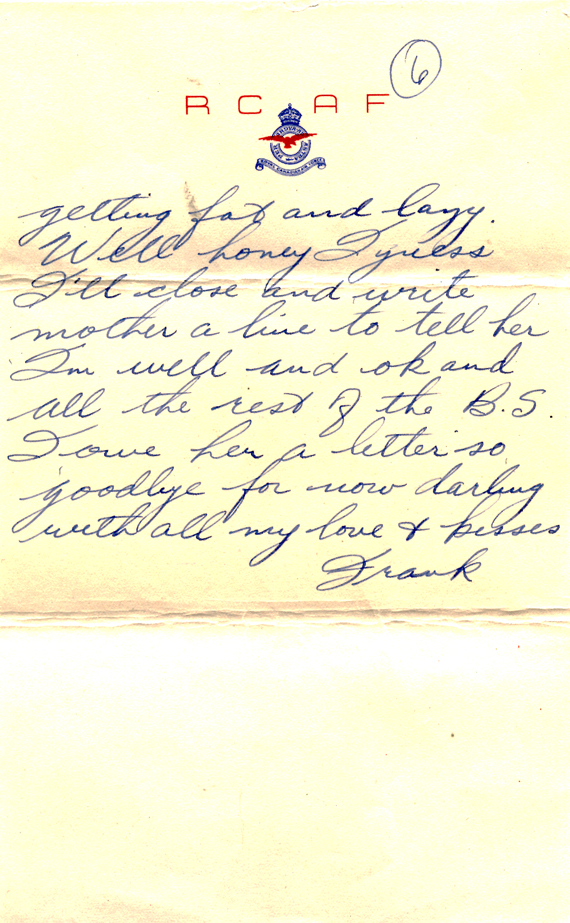 6
R C A F
getting fat and lazy.
Well honey I guess
I'll close and write
mother a line to tell her
Im well and ok and
all the rest of the B.S.
I owe her a letter so
goodbye for now darling
with all my love & kisses
Frank